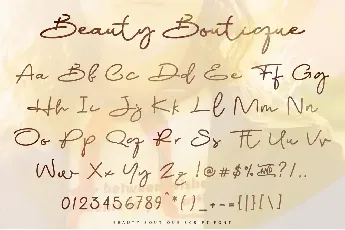 Beauty Boutique
Aa Bb Cc Dd Ee Ff Gg
Hh Ii Jj Kk Ll Mm Nn
Oo Pp Qq Rr Ss Tt Uu Vv
Ww Xx Yy Zz !@#$% AND ?/..
0123456789"*()_+-={|}[\]
BEAUTY BOUTIQUE SCRIPT FONT